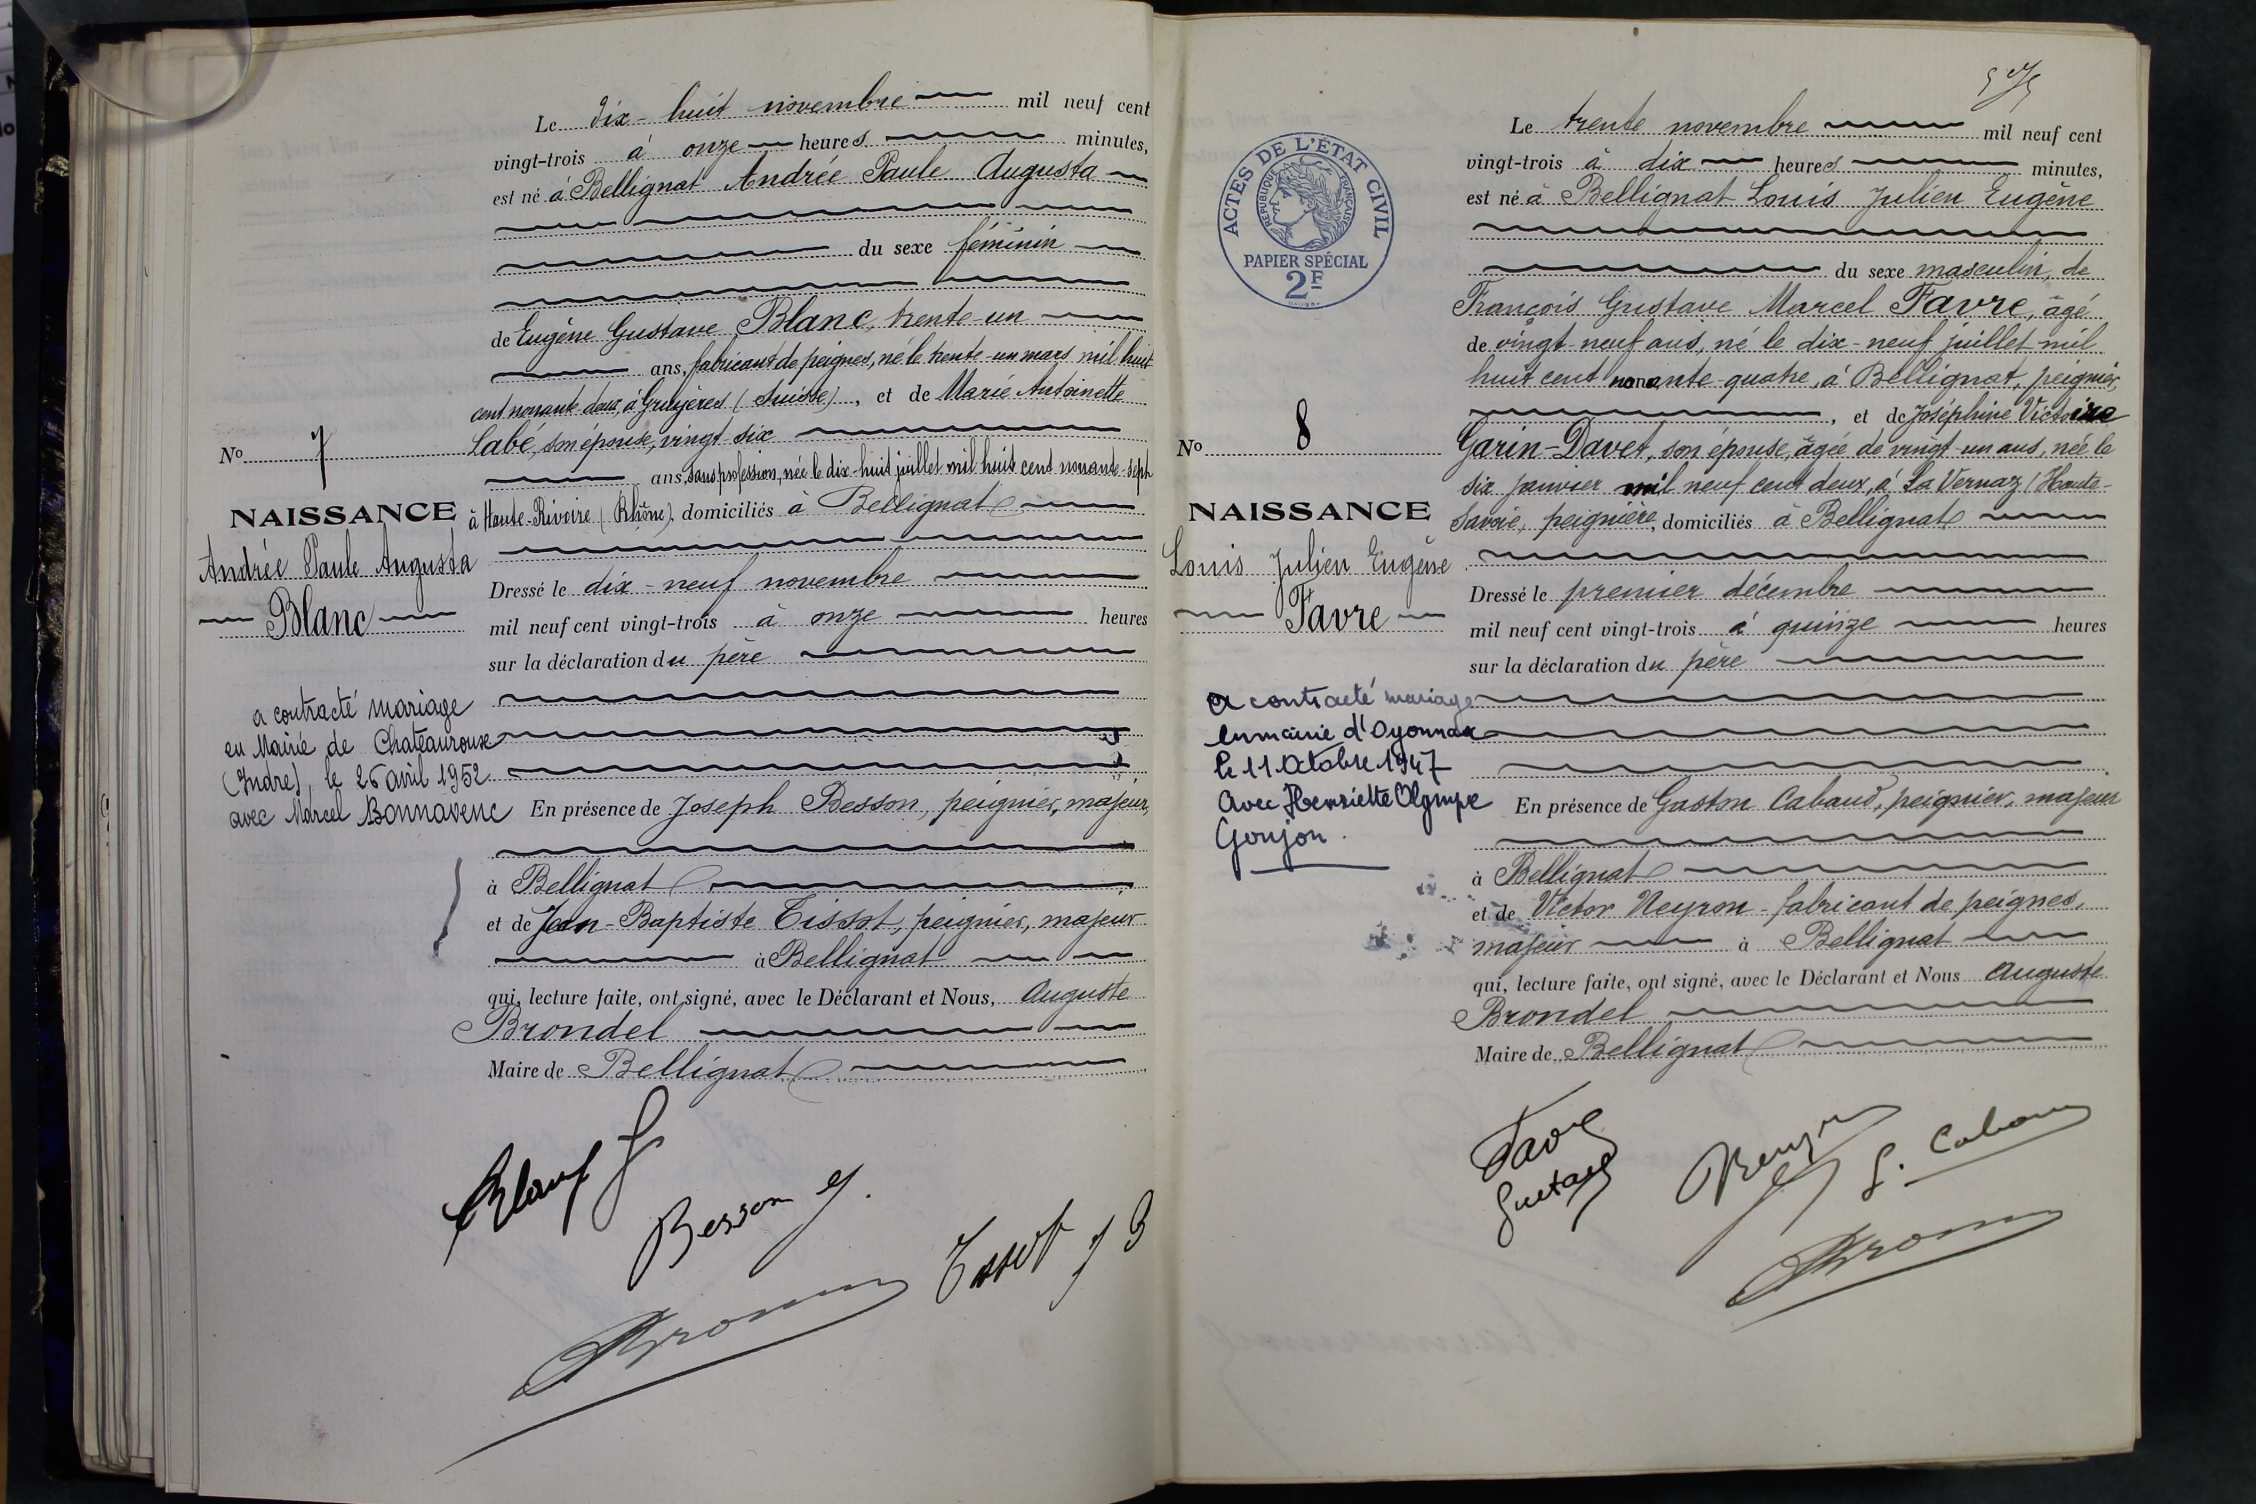 Le dix-huit novembre mil neuf cent
vingt-trois à onze heures minutes,
est né à Bellignat Andrée Paule Augusta
du sexe féminin
de Eugène Gustave Blanc, trente-un
ans, fabricant de peignes, né le trente-un mars mil huit
cent nonante deux, à Gruyères (Suisse), et de Marie Antoinette
Labé, son épouse, vingt-six
ans, sans profession, née le dix-huit juillet mil huit cent nonante-sept
à Haute-Rivoire (Rhône), domiciliés à Bellignat
Dressé le dix-neuf novembre
mil neuf cent vingt-trois à onze heures
sur la déclaration du père
En présence de Joseph Besson, peignier, majeur,
à Bellignat
et de Jean-Baptiste Tissot, peignier, majeur
à Bellignat
qui, lecture faite, ont signé, avec le Déclarant et Nous, Auguste
Brondel
Maire de Bellignat
No 7
NAISSANCE
Andrée Paule Augusta
Blanc
a contracté mariage
en Mairie de Chateauroux
(Indre), le 26 avril 1952
avec Marcel Bonnavenc
Besson J.
Tissot J B
ACTES DE L'ÉTAT CIVIL
RÉPUBLIQUE FRANÇAISE
PAPIER SPÉCIAL
2F
Le trente novembre mil neuf cent
vingt-trois à dix heures minutes,
est né à Bellignat Louis Julien Eugène
du sexe masculin, de
François Gustave Marcel Favre, âgé
de vingt-neuf ans, né le dix-neuf juillet mil
huit cent nonante-quatre, à Bellignat, peignier,
, et de Joséphine Victoire
Garin-Davet, son épouse, âgée de vingt-un ans, née le
six janvier mil neuf cent deux, à La Vernaz (Haute-
Savoie, peignière, domiciliés à Bellignat
Dressé le premier décembre
mil neuf cent vingt-trois à quinze heures
sur la déclaration du père
En présence de Gaston Cabaud, peignier, majeur
à Bellignat
et de Victor Neyron fabricant de peignes,
majeur à Bellignat
qui, lecture faite, ont signé, avec le Déclarant et Nous Auguste
Brondel
Maire de Bellignat
No 8
NAISSANCE
Louis Julien Eugène
Favre
a contracté mariage
en mairie d'Oyonnax
le 11 Octobre 1947
avec Henriette Olympe
Goujon.
Favre
Gustave